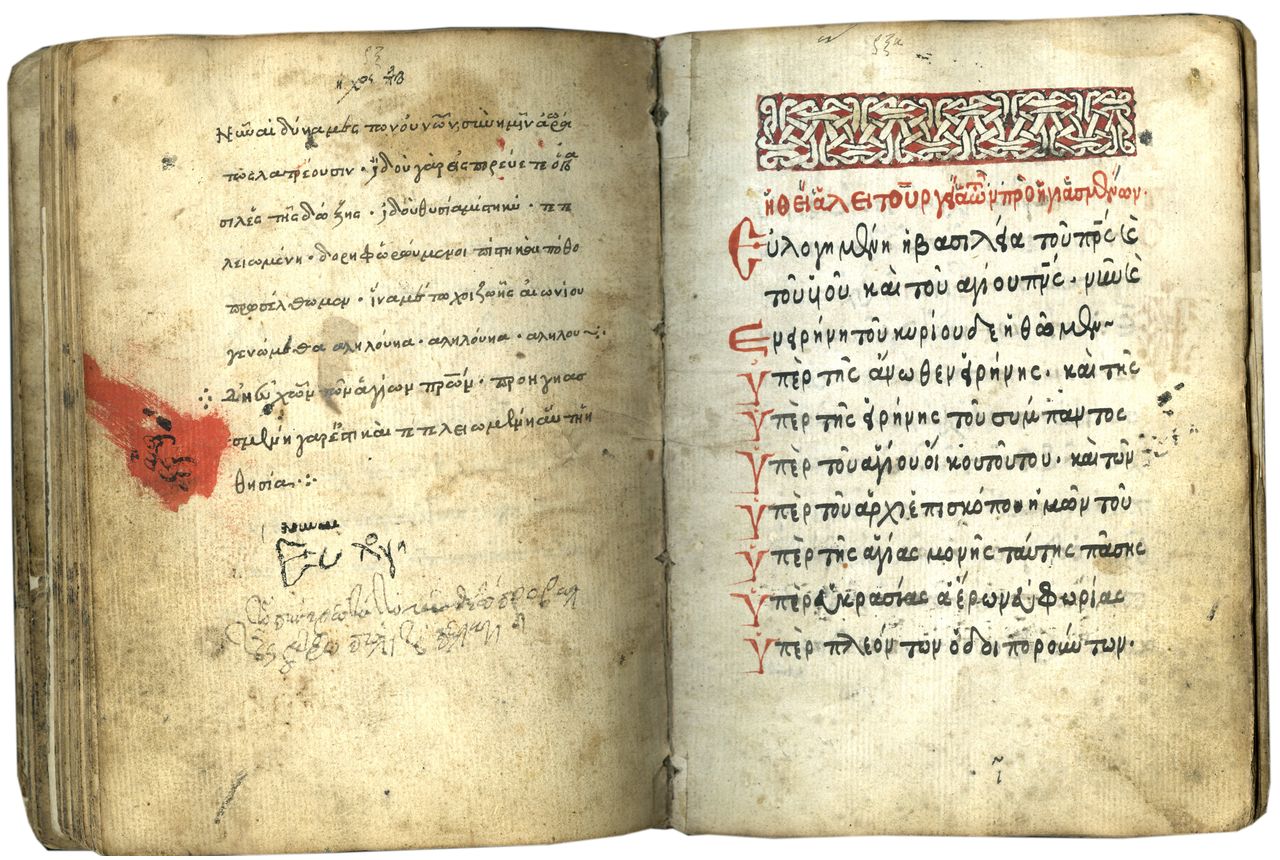 ρξ
ἦχος πβ
Νῦν αἱ δύναμεις τον οὐνῶν, σὺν ημῖν ἀορά
τως λατρέουσιν · ἰδοὺ γὰρ εἰσπορεύετε ὁ βα
σιλὲς τῆς δώξης · ἰδοὺ θυσία μυστικὴ · τε τε
λειωμένη · δορηφωρεύμενοι πίστη καὶ πόθο
προσέλθωμεν · ἵνα μετωχοι ζωῆς αἰωνίου
γενώμεθα αλιλούηα · αλιλούηα · αλιλου
Δι ευχῶν τῶν ἁγίων πρῶν · προηγιασ
σμένη γαρ ἐστὶ καὶ τε τελειωμένη αὕτη ἡ
θησία
Νιωαι
ρξα
ἡ θεία λειτουργία τῶν προηγιασμένων ·
Εὐλογημένη ἡ βασιλεία τοῦ πρς κὲ
τοῦ υἱοῦ καὶ τοῦ αγίου πνς · νῦν κὲ
Εν εἰρήνη τοῦ κυρίου δεηθῶμεν
Υπὲρ της ἄνωθεν εἰρήνης · καὶ της
Υπὲρ της εἰρήνης τοῦ σύμπαντος
Υπὲρ τοῦ αγίου οἴκου τούτου · καὶ τῶν
Υπὲρ τοῦ ἀρχιἐπισκόπου ἡμῶν τοῦ
Υπὲρ της ἁγίας μονῆς ταύτης πάσης
Υπὲρ εὐκρασίας ἀέρων εὐφωρίας
Υπὲρ πλεόντων ὁδοιποροιώντων ·
ι